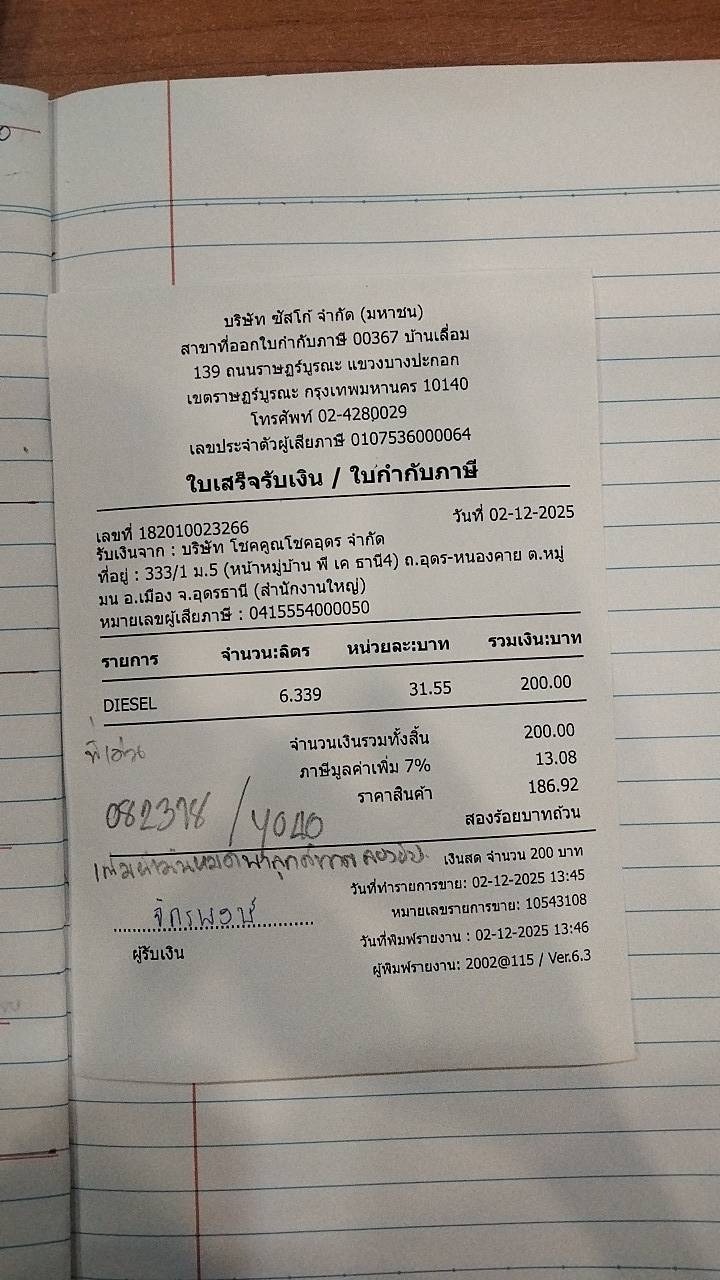 บริษัท ซัสโก้ จำกัด (มหาชน)
สาขาที่ออกใบกำกับภาษี 00367 บ้านเลื่อม
139 ถนนราษฎร์บูรณะ แขวงบางปะกอก
เขตราษฎร์บูรณะ กรุงเทพมหานคร 10140
โทรศัพท์ 02-4280029
เลขประจำตัวผู้เสียภาษี 0107536000064
ใบเสร็จรับเงิน / ใบกำกับภาษี
เลขที่ 182010023266 วันที่ 02-12-2025
รับเงินจาก : บริษัท โชคคูณโชคอุดร จำกัด
ที่อยู่ : 333/1 ม.5 (หน้าหมู่บ้าน พี เค ธานี4) ถ.อุดร-หนองคาย ต.หมู่
มน อ.เมือง จ.อุดรธานี (สำนักงานใหญ่)
หมายเลขผู้เสียภาษี : 0415554000050
รายการ จำนวน:ลิตร หน่วยละ:บาท รวมเงิน:บาท
DIESEL 6.339 31.55 200.00
จำนวนเงินรวมทั้งสิ้น 200.00
ภาษีมูลค่าเพิ่ม 7% 13.08
ราคาสินค้า 186.92
สองร้อยบาทถ้วน
082378 / 4040
เงินสด จำนวน 200 บาท
วันที่ทำรายการขาย: 02-12-2025 13:45
หมายเลขรายการขาย: 10543108
จักรพงษ์
วันที่พิมพ์รายงาน : 02-12-2025 13:46
ผู้รับเงิน
ผู้พิมพ์รายงาน: 2002@115 / Ver.6.3